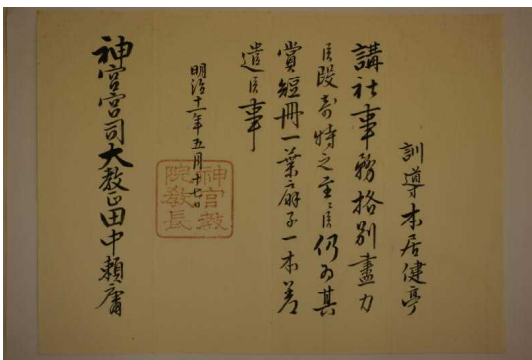 訓導本居健亭
講社事務格別盡力
候段奇特之至候仍為其
賞短冊一葉扇子一本差
遣候事
明治十一年五月十七日
神宮教
院教長
神宮宮司大教正田中頼庸